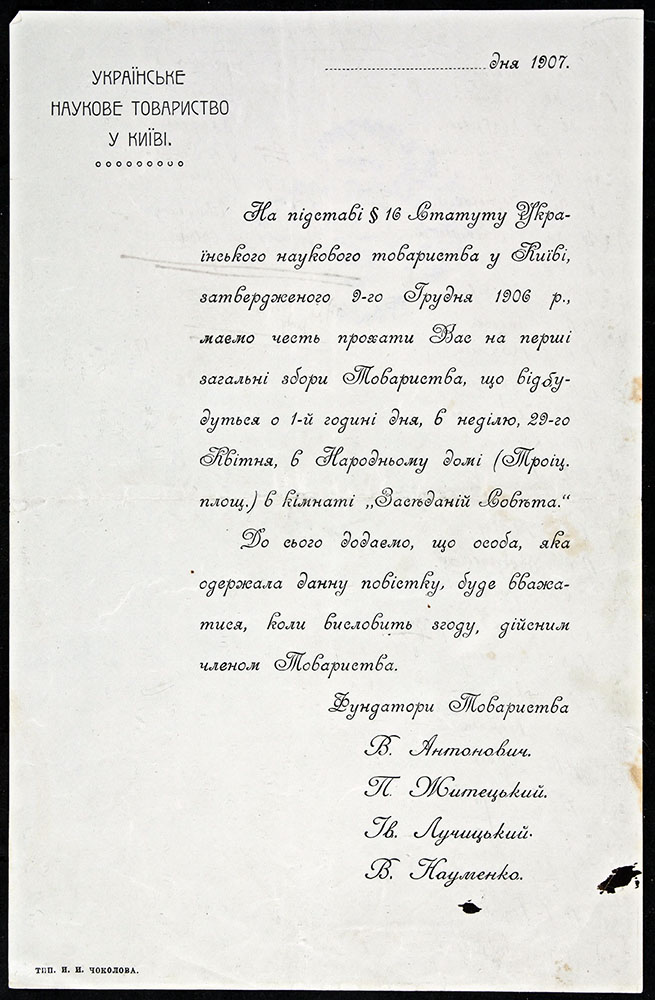 УКРАЇНСЬКЕ
НАУКОВЕ ТОВАРИСТВО
У КИЇВІ.
дня 1907.
На підставі § 16 Статуту Укра-
їнського наукового товариства у Київі,
затвердженого 9-го Грудня 1906 р.,
маємо честь прохати Вас на перші
загальні збори Товариства, що відбу-
дуться о 1-й годині дня, в неділю, 29-го
Квітня, в Народньому домі (Троіц.
площ.) в кімнаті „Засѣданій Совѣта.“
До сього додаємо, що особа, яка
одержала данну повістку, буде вважа-
тися, коли висловить згоду, дійсним
членом Товариства.
Фундатори Товариства
В. Антонович.
П. Житецький.
Ів. Лучицький.
В. Науменко.
ТИП. И. И. ЧОКОЛОВА.